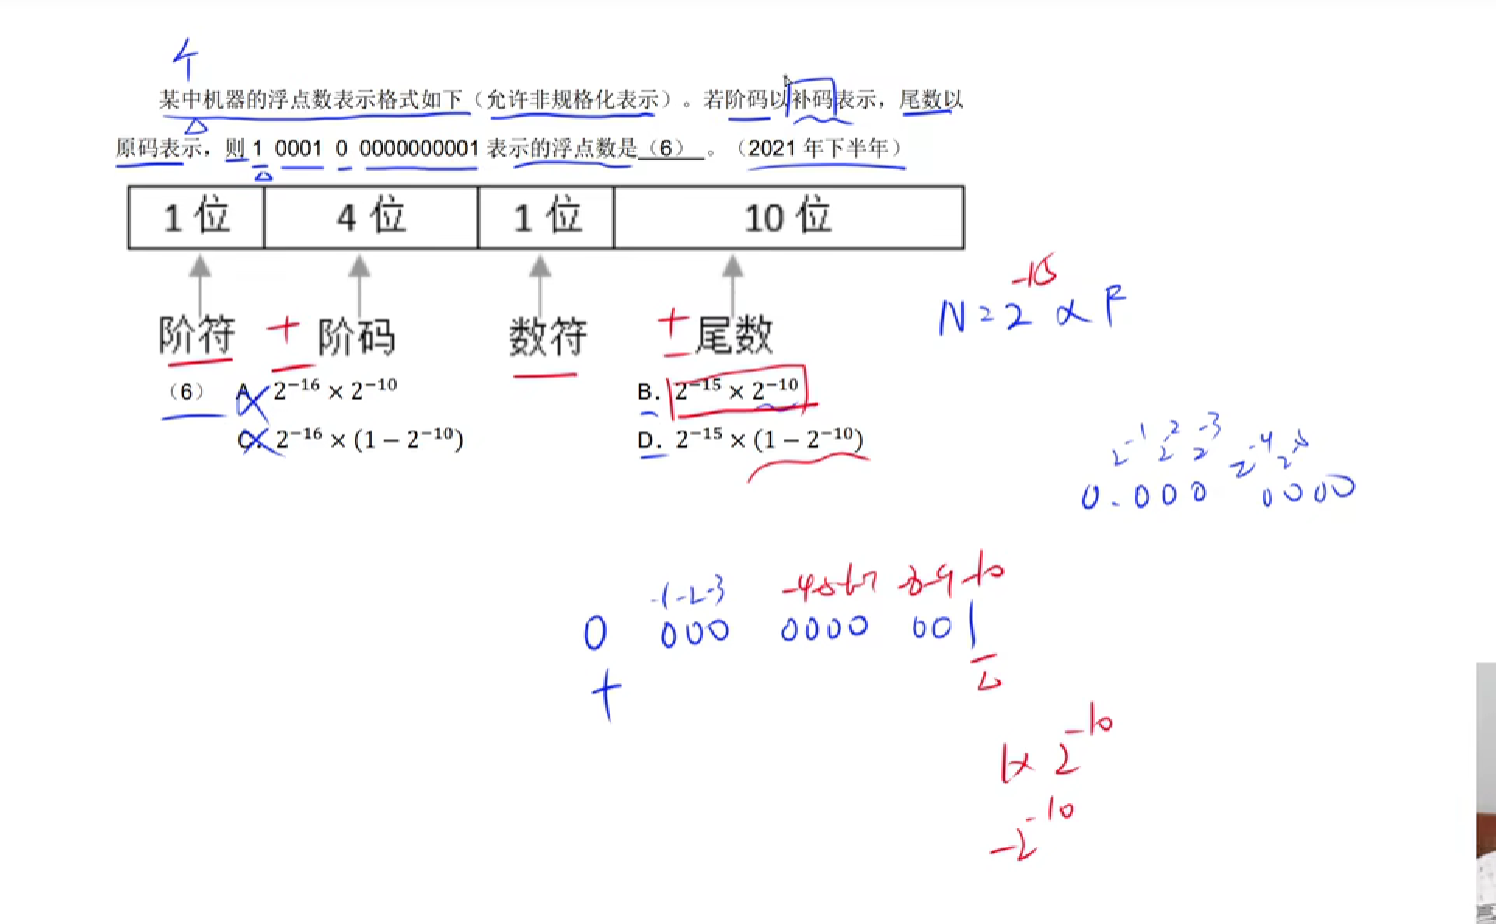 某中机器的浮点数表示格式如下（允许非规格化表示）。若阶码以补码表示，尾数以
原码表示，则 1 0001 0 0000000001 表示的浮点数是（6）。（2021 年下半年）
1 位 4 位 1 位 10 位
阶符 + 阶码 数符 + 尾数
-15
N = 2 × F
（6） A. 2⁻¹⁶ × 2⁻¹⁰ B. 2⁻¹⁵ × 2⁻¹⁰
C. 2⁻¹⁶ × (1 − 2⁻¹⁰) D. 2⁻¹⁵ × (1 − 2⁻¹⁰)
0.000 0000
-1-2-3 -4-5-6-7 -8-9-10
0 000 0000 001
+
1× 2⁻¹⁰
-2⁻¹⁰